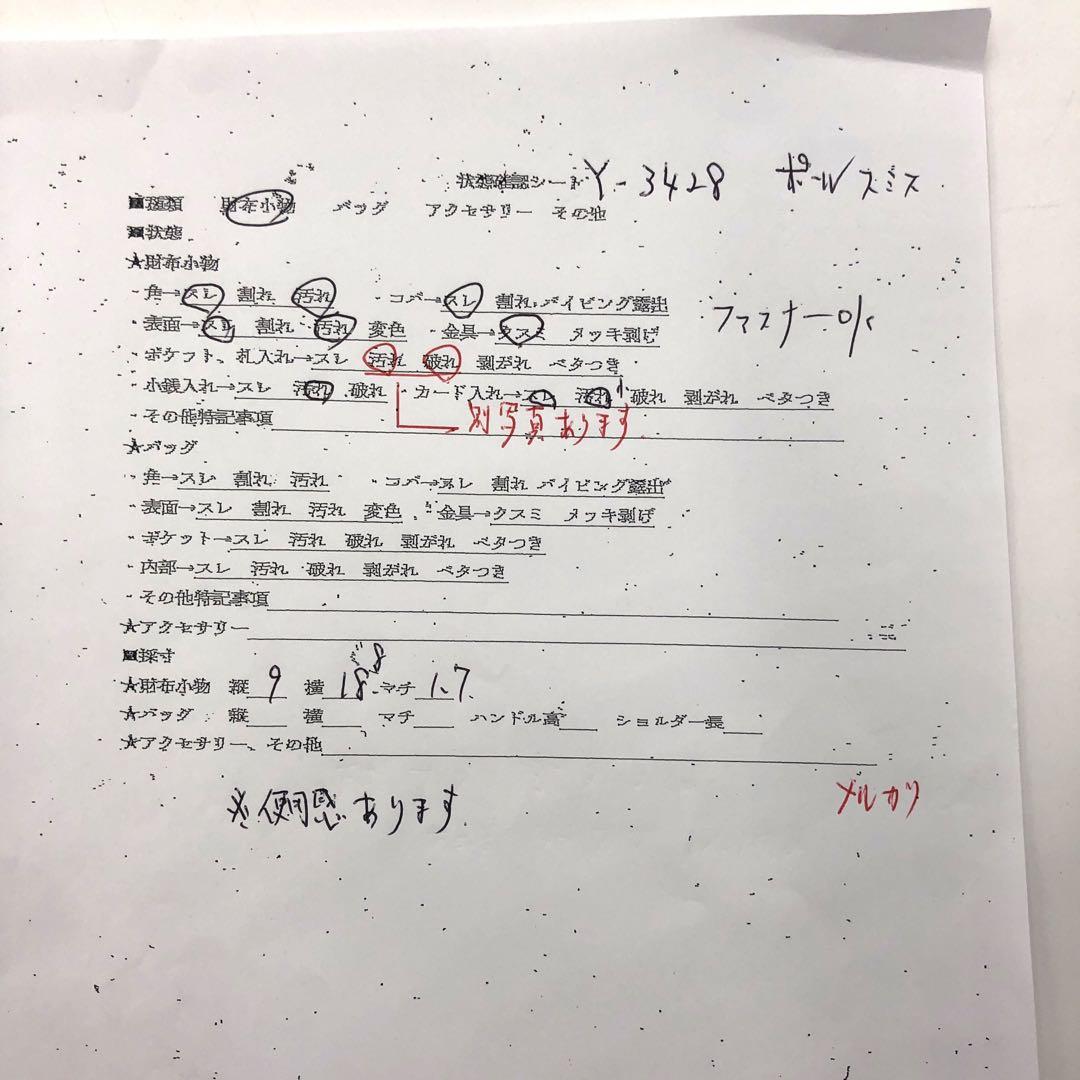 状態確認シート Y-3428 ポールスミス
■種類 財布小物 バッグ アクセサリー その他
■状態
★財布小物
・角→スレ 割れ 汚れ ・コバ→スレ 割れ パイピング露出
・表面→スレ 割れ 汚れ 変色 ・金具→クスミ メッキ剥げ ファスナーOK
・ポケット、札入れ→スレ 汚れ 破れ 剥がれ ベタつき
・小銭入れ→スレ 汚れ 破れ ・カード入れ→スレ 汚れ 破れ 剥がれ ベタつき
・その他特記事項 別写真あります
★バッグ
・角→スレ 割れ 汚れ ・コバ→スレ 割れ パイピング露出
・表面→スレ 割れ 汚れ 変色 ・金具→クスミ メッキ剥げ
・ポケット→スレ 汚れ 破れ 剥がれ ベタつき
・内部→スレ 汚れ 破れ 剥がれ ベタつき
・その他特記事項
★アクセサリー
■採寸
★財布小物 縦 9 横 18.8 マチ 1.7
★バッグ 縦 横 マチ ハンドル高 ショルダー長
★アクセサリー、その他
※使用感あります メルカリ